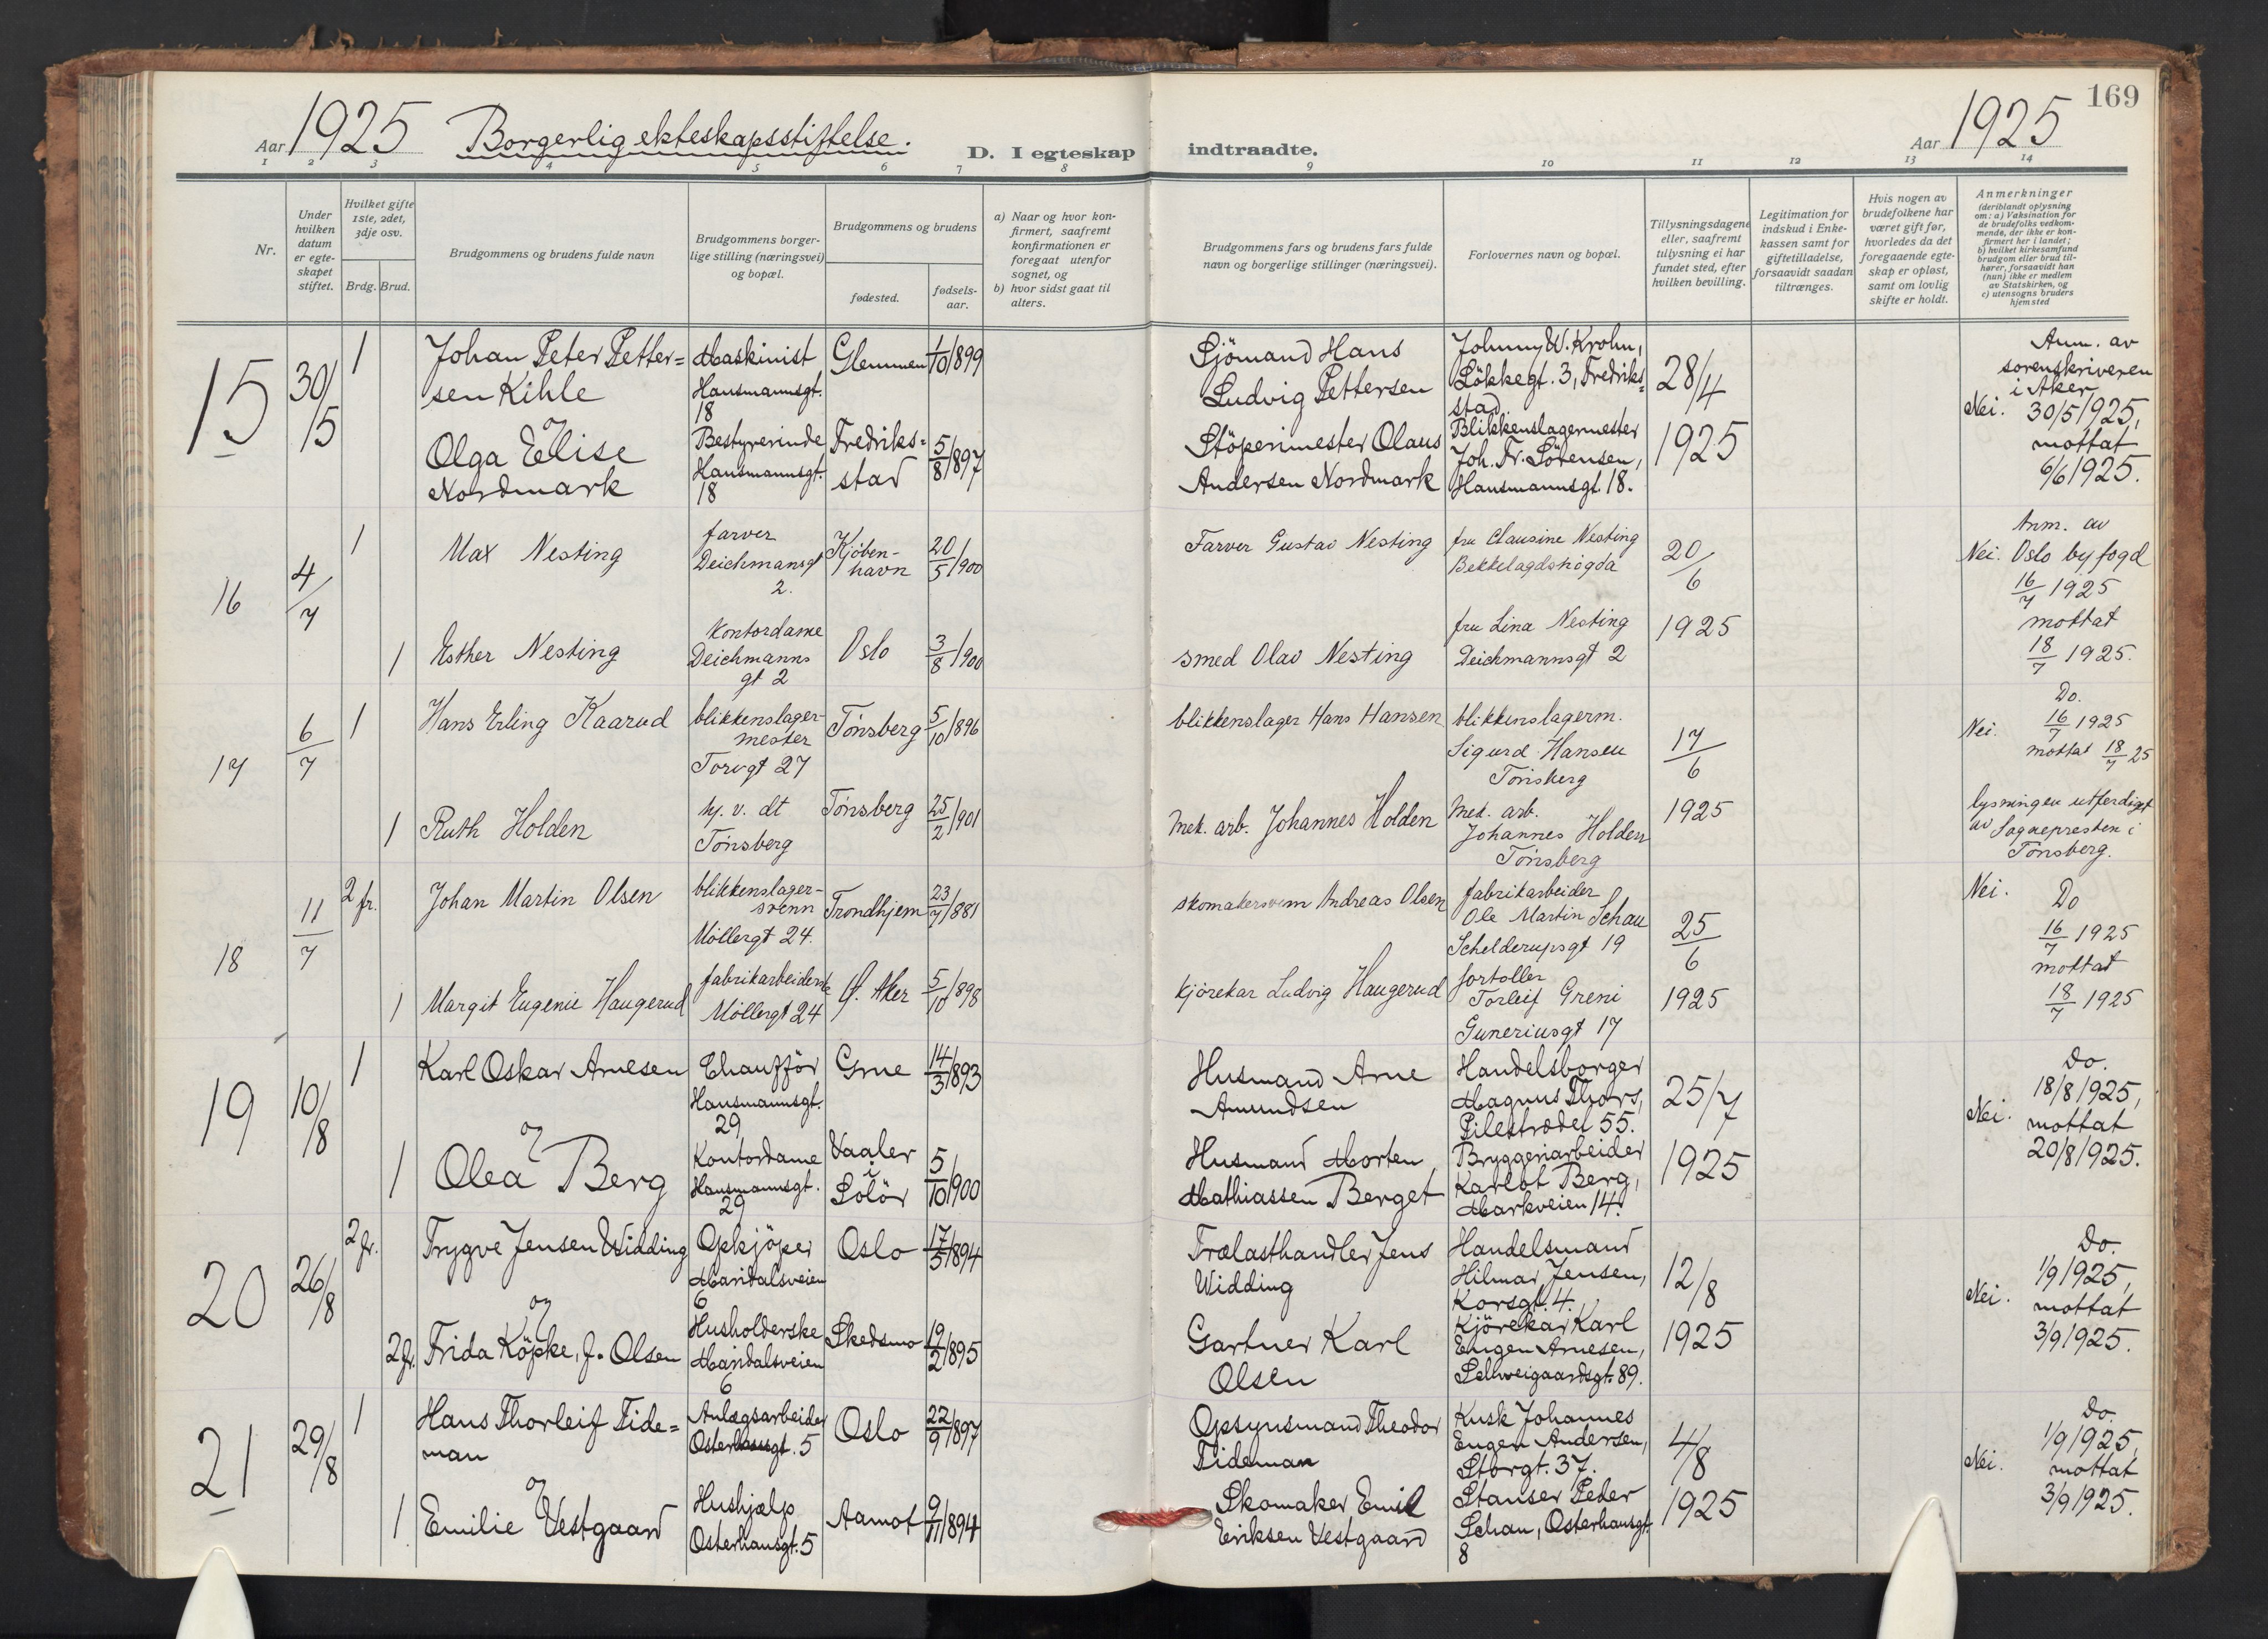 169
Aar 1925 Borgerlig ekteskapsstiftelse. D. I egteskap indtraadte. Aar 1925
1 2 3 4 5 6 7 8 9 10 11 12 13 14
Nr.
Under hvilken datum er egteskapet stiftet.
Hvilket gifte 1ste, 2det, 3dje osv.
Brdg. Brud.
Brudgommens og brudens fulde navn
Brudgommens borgerlige stilling (næringsvei) og bopæl.
Brudgommens og brudens
fødested.
fødselsaar.
a) Naar og hvor konfirmert, saafremt konfirmationen er foregaat utenfor sognet, og
b) hvor sidst gaat til alters.
Brudgommens fars og brudens fars fulde navn og borgerlige stillinger (næringsvei).
Forlovernes navn og bopæl.
Tillysningsdagene eller, saafremt tillysning ei har fundet sted, efter hvilken bevilling.
Legitimation for indskud i Enkekassen samt for giftetilladelse, forsaavidt saadan tiltrænges.
Hvis nogen av brudefolkene har været gift før, hvorledes da det foregaaende egteskap er opløst, samt om lovlig skifte er holdt.
Anmerkninger
(deriblandt oplysning om: a) Vaksination for de brudefolks vedkommende, der ikke er konfirmert her i landet;
b) hvilket kirkesamfund brudgom eller brud tilhører, forsaavidt han (hun) ikke er medlem av Statskirken, og
c) utensogns bruders hjemsted
15
30/5
1
Johan Peter Petter=
sen Kihle
Maskinist
Hausmannsgt.
18
Glemmen
1/10 1899
Sjömand Hans
Ludvig Pettersen
Johnny W. Krohn,
Lökkegt. 3, Fredriks=
stad.
28/4
1925
Nei.
Anm. av
sorenskriveren
i Aker
30/5 1925,
mottat
6/6 1925.
og
Olga Elise
Nordmark
Bestyrerinde
Hausmannsgt.
18
Fredriks=
stad
5/8 1897
Stöperimester Olaus
Andersen Nordmark
Blikkenslagermester
Joh. Fr. Sörensen,
Hausmannsgt. 18.
16
4/7
1
Max Nesting
farver
Deichmansgt
2.
Kjöben-
havn
20/5 1900
Farver Gustav Nesting
fru Clausine Nesting
Bekkelagshögda
20/6
1925
Nei.
Anm. av
Oslo byfogd
16/7 1925
mottat
18/7 1925.
1
Esther Nesting
Kontordame
Deichmanns
gt 2
Oslo
3/8 1900
smed Olav Nesting
fru Lina Nesting
Deichmannsgt 2
17
6/7
1
Hans Erling Kaarud
blikkenslager-
mester
Torvgt 27
Tönsberg
5/10 1896
blikkenslager Hans Hansen
blikkenslagerm.
Sigurd Hansen
Tönsberg
17/6
1925
Nei.
Do.
16/7 1925
mottat 18/7 25
lysningen utferdiget
av Sognepresten i
Tönsberg.
1
Ruth Holden
hj. v. dt
Tönsberg
Tönsberg
25/2 1901
Mek. arb. Johannes Holden
Mek. arb.
Johannes Holden
Tönsberg
18
11/7
2 fr.
Johan Martin Olsen
blikkenslager-
svenn
Möllergt 24.
Trondhjem
23/7 1881
skomakersvenn Andreas Olsen
fabrikarbeider
Ole Martin Schau
Schelderupsgt 19
25/6
1925
Nei.
Do
16/7 1925
mottat
18/7 1925
1
Margit Eugenie Haugerud
fabrikarbeiderske
Möllergt 24
Ø. Aker
5/10 1898
kjörekar Ludvig Haugerud
fortoller
Torleif Greni
Guneriusgt 17
19
10/8
1
Karl Oskar Arnesen
Chaufför
Hausmannsgt.
29
Grue
14/3 1893
Husmand Arne
Amundsen
Handelsborger
Magnus Thors,
Pilestrædet 55.
25/7
1925
Nei.
Do.
18/8 1925,
mottat
20/8 1925.
og
1
Olea Berg
Kontordame
Hausmannsgt.
29
Vaaler
i
Solör
5/10 1900
Husmand Morten
Mathiassen Berget
Bryggeriarbeider
Karlot Berg,
Markveien 14.
20
26/8
2 fr.
Trygve Jensen Widding
Opkjöper
Maridalsveien
6
Oslo
17/5 1894
Trælasthandler Jens
Widding
Handelsmand
Hilmar Jensen,
Korsgt. 4.
12/8
1925
Nei.
Do.
1/9 1925,
mottat
3/9 1925.
og
2 fr.
Frida Köpke, f. Olsen
Husholderske
Maridalsveien
6
Skedsmo
19/2 1895
Gartner Karl
Olsen
Kjörekar Karl
Eugen Arnesen,
Sellweigaardsgt. 89.
21
29/8
1
Hans Thorleif Tide=
man
Anlægsarbeider
Osterhausgt. 5
Oslo
22/9 1897
Opsynsmand Theodor
Tideman
Kusk Johannes
Eugen Andersen,
Storgt. 37.
4/8
1925
Nei.
Do.
1/9 1925,
mottat
3/9 1925.
og
1
Emilie Vestgaard
Hushjælp
Osterhausgt. 5
Aamot
9/11 1894
Skomaker Emil
Eriksen Vestgaard
Stanser Peder
Schau, Osterhausgt.
8